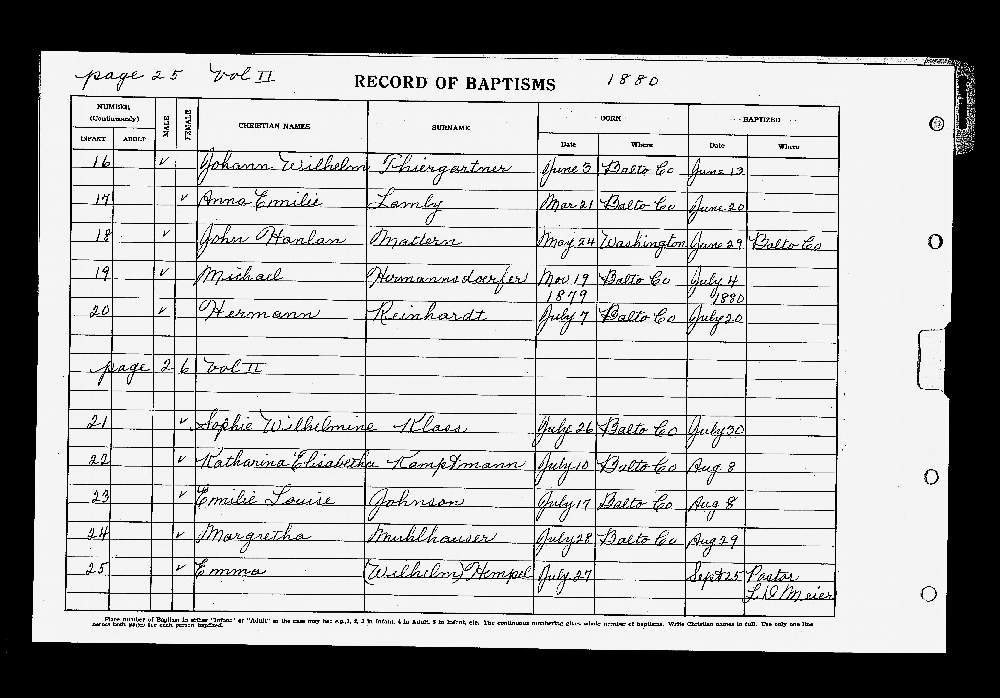 page 25 Vol II RECORD OF BAPTISMS 1880
NUMBER (Continuously) MALE FEMALE CHRISTIAN NAMES SURNAME BORN BAPTIZED
INFANT ADULT Date Where Date Where
16 ✓ Johann Wilhelm Thiergartner June 3 Balto Co June 13
17 ✓ Anna Emilie Lamly Mar 21 Balto Co June 20
18 ✓ John Hanlan Mattern May 24 Washington June 29 Balto Co
19 ✓ Michael Hermannsdoerfer Nov 19 Balto Co July 4
1879 1880
20 ✓ Hermann Reinhardt July 7 Balto Co July 20
page 26 Vol II
21 ✓ Sophie Wilhelmine Klass July 26 Balto Co July 30
22 ✓ Katharina Elisabetha Kamptmann July 10 Balto Co Aug 8
23 ✓ Emilie Louise Johnson July 17 Balto Co Aug 8
24 ✓ Margretha Muhlhauser July 28 Balto Co Aug 29
25 ✓ Emma (Wilhelm) Hempel July 27 Sept 25 Pastor
L D Meier
Place number of Baptism in either "Infant" or "Adult" as the case may be: e.g., 1, 2, 3 in Infant, 4 in Adult, 5 in Infant, etc. The continuous numbering gives whole number of baptisms. Write Christian names in full. Use only one line
across both pages for each person baptized.